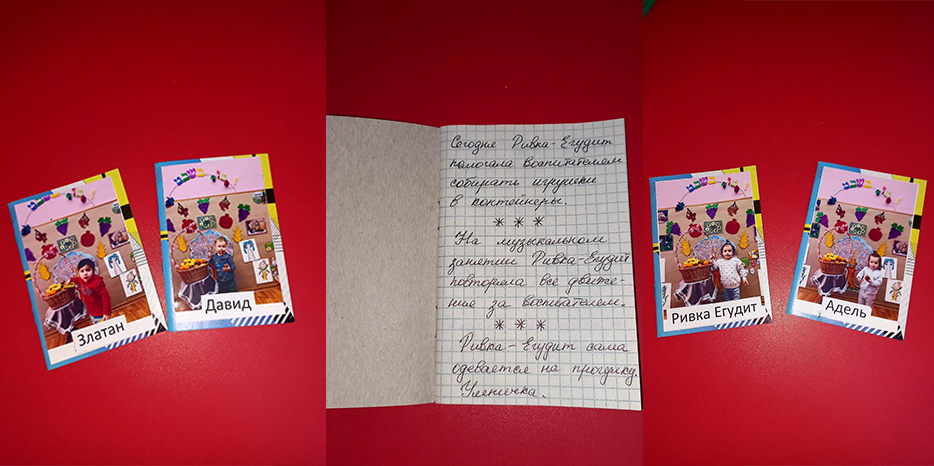 Златан
Давид
Сегодня Ривка-Егудит
помогала воспитателем
собирать игрушки
в контейнеры.
* * *
На музыкальном
занятии Ривка-Егудит
повторяла все движе-
ние за
* * *
Ривка-Егудит сама
одевается на прогулку.
Умничка.
Ривка Егудит
Адель